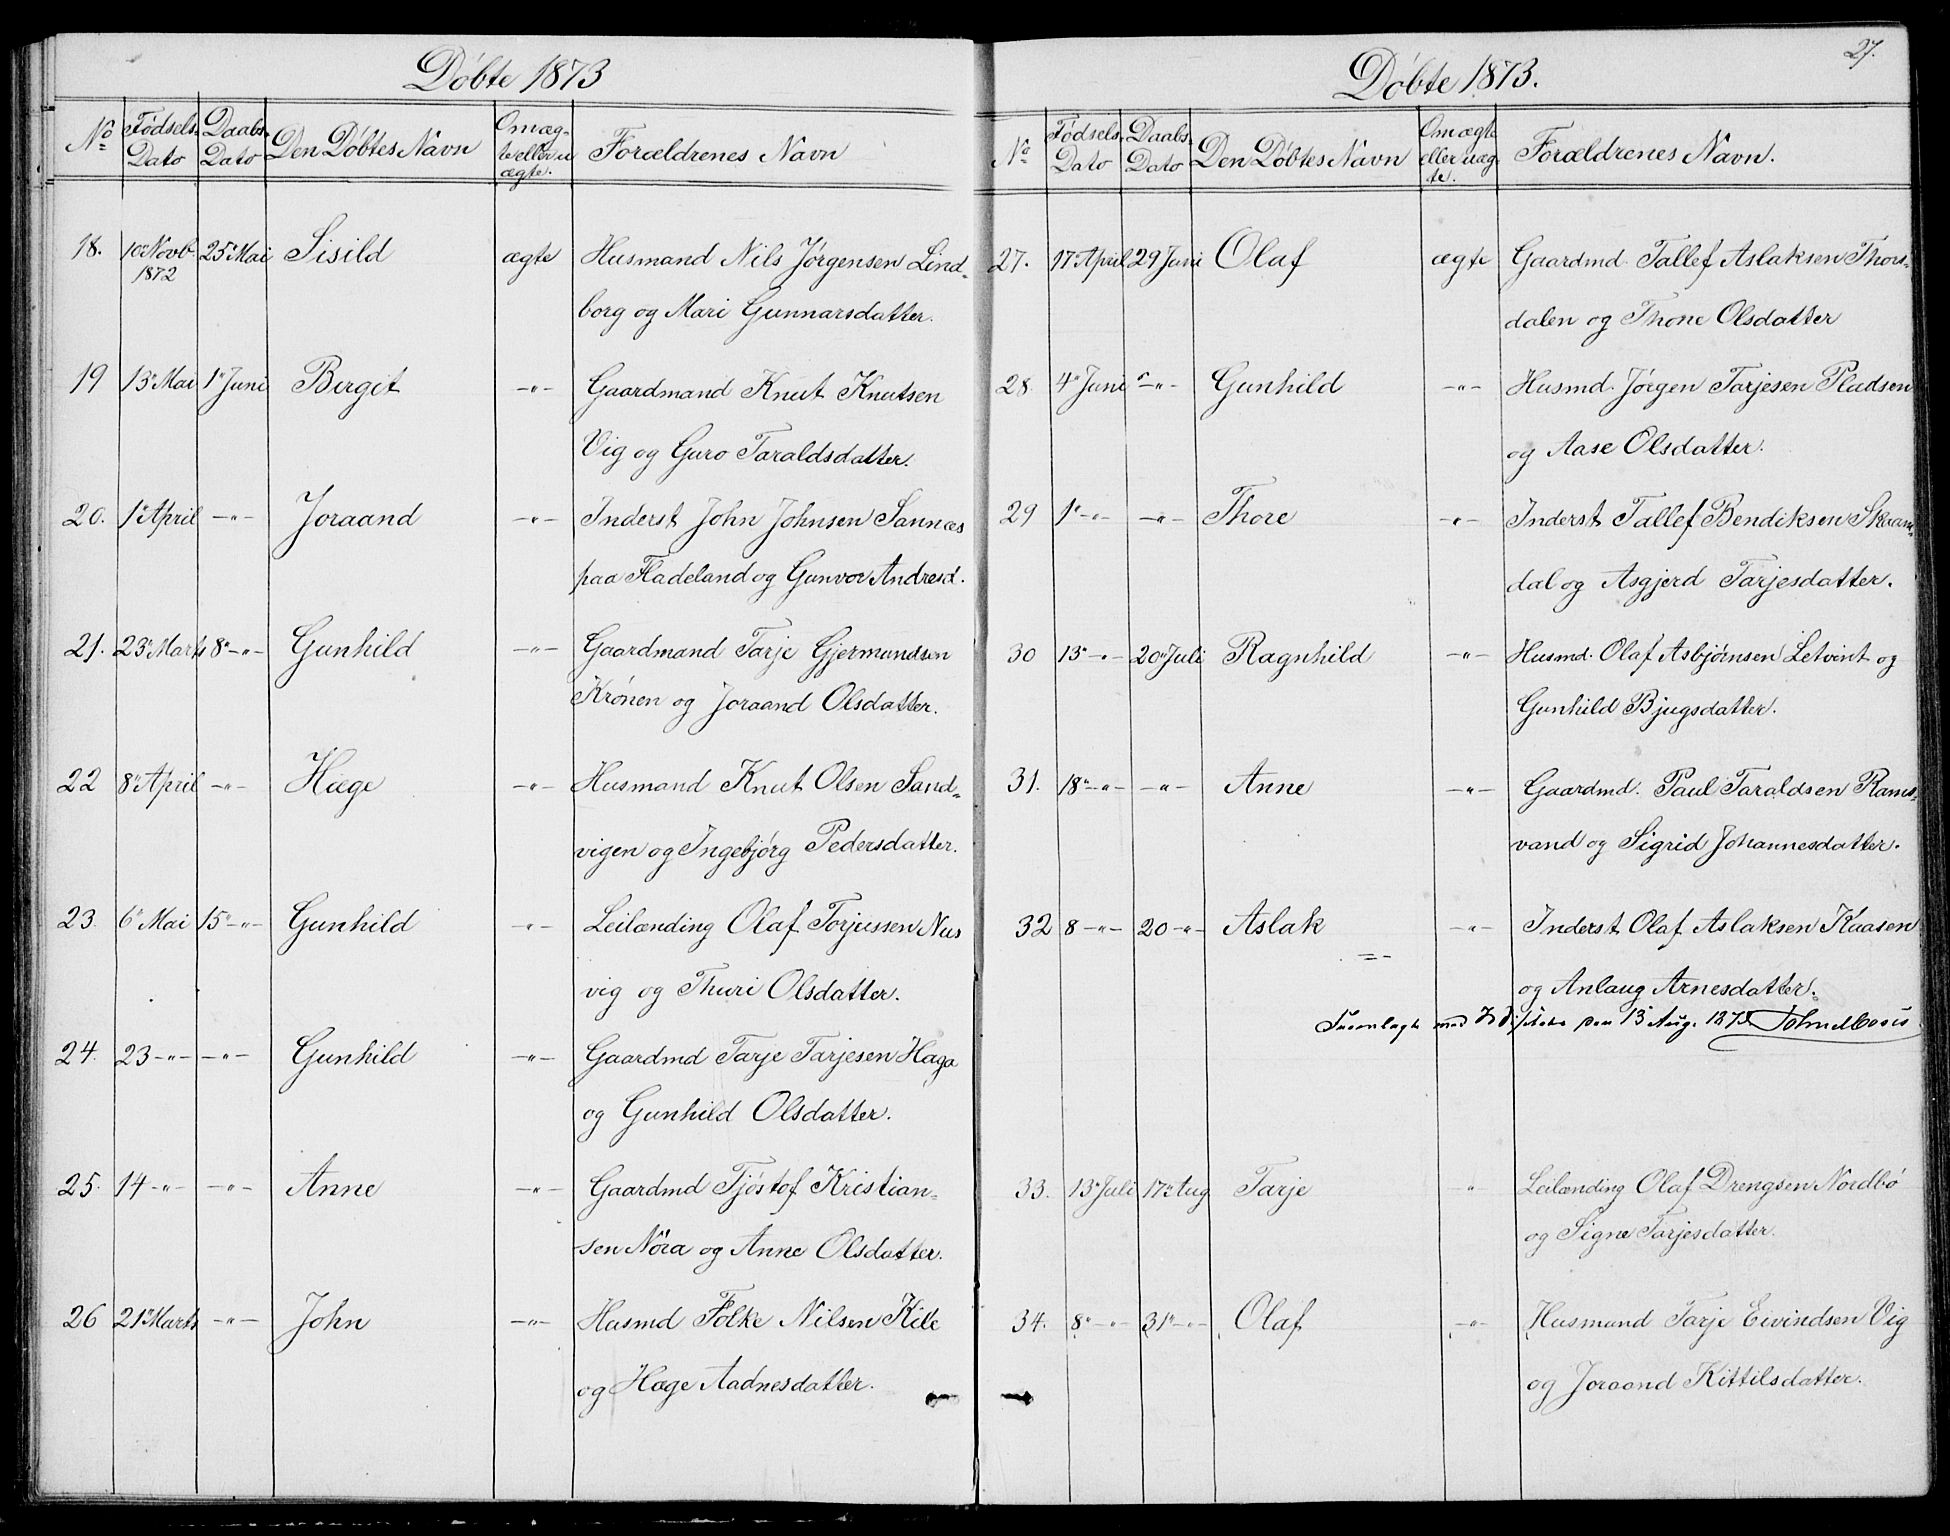 Döbte 1873
No Fødsels- Dato Daabs- Dato Den Döbtes Navn Om æg- te eller u ægte. Forældrenes Navn
18. 10" Novb. 1872 25" Mai Sisild ægte Husmand Nils Jörgensen Lind-
borg og Mari Gunnarsdatter.
19 13" Mai 1" Juni Birgit -"- Gaardmand Knut Knutsen
Vig og Guro Taraldsdatter.
20. 1" April -"- Joraand -"- Inderst John Johnsen Sannæs
paa Fladeland og Gunvor Andresd.
21. 23" Marts 8" -"- Gunhild -"- Gaardmand Tarje Gjermundsen
Krönen og Joraand Olsdatter.
22 8" April -"- Hæge -"- Husmand Knut Olsen Sand-
vigen og Ingebjörg Pedersdatter.
23. 6" Mai 15" -"- Gunhild -"- Leilænding Olaf Torjussen Nus
vig og Thuri Olsdatter.
24. 23 -"- -"- Gunhild -"- Gaardmd Tarje Tarjesen Haga
og Gunhild Olsdatter.
25. 14 -"- -"- Anne -"- Gaardmd Tjöstof Kristian-
sen Nöra og Anne Olsdatter.
26 21" Marts -"- John -"- Husmd Folke Nilsen Kile
og Hæge Aadnesdatter.
27.
Döbte 1873.
No Fødsels- Dato Daabs- Dato Den Döbtes Navn Om ægte eller uæg- te. Forældrenes Navn.
27. 17 April 29 Juni Olaf ægte Gaardmd. Tallef Aslaksen Thors-
dalen og Thone Olsdatter
28. 4" Juni -"- Gunhild -"- Husmd. Jörgen Tarjesen Pladsen
og Aase Olsdatter.
29 1" -"- -"- Thore -"- Inderst Tallef Bendiksen Skaam-
dal og Asgjerd Tarjesdatter.
30 13" -"- 20" Juli Ragnhild -"- Husmd. Olaf Asbjörnsen Letvint og
Gunhild Bjugsdatter.
31. 18" -"- -"- Anne -"- Gaardmd. Paul Taraldsen Rams-
vand og Sigrid Johannesdatter.
32 8 -"- 20 -"- Aslak -"- Inderst Olaf Aslaksen Kaasen
og Anlaug Arnesdatter.
med den 13 Aug. 1873
33. 13" Juli 17" Aug. Tarje " Leilænding Olaf Drengsen Nordbö
og Signe Tarjesdatter.
34. 8" -"- 31" -"- Olaf -"- Husmand Tarje Eivindsen Vig
og Joraand Kittilsdatter.